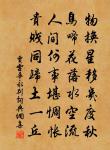 物換星移幾度秋
鳥啼花落水空流
人間何事堪惆悵
貴賤同歸土一丘